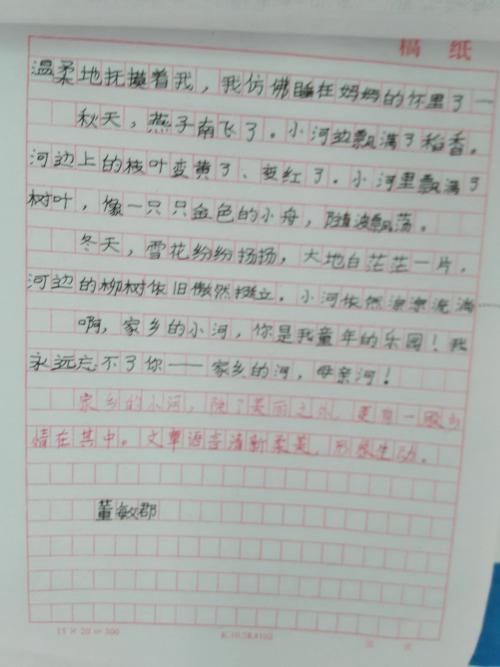 稿 纸
温柔地抚摸着我，我仿佛睡在妈妈的怀里了一
秋天，燕子南飞了。小河边飘满了稻香。
河边上的枝叶变黄了、变红了。小河里飘满了
树叶，像一只只金色的小舟，随波飘荡。
冬天，雪花纷纷扬扬，大地白茫茫一片，
河边的柳树依旧傲然挺立。小河依然流满
啊，家乡的小河，你是我童年的乐园！我
永远忘不了你——家乡的河，母亲河！
家乡的小河，除了美丽之外，更有一股乡
情在其中。文章语言清新柔美，形象生动。
董敏郡
15 × 20 = 300